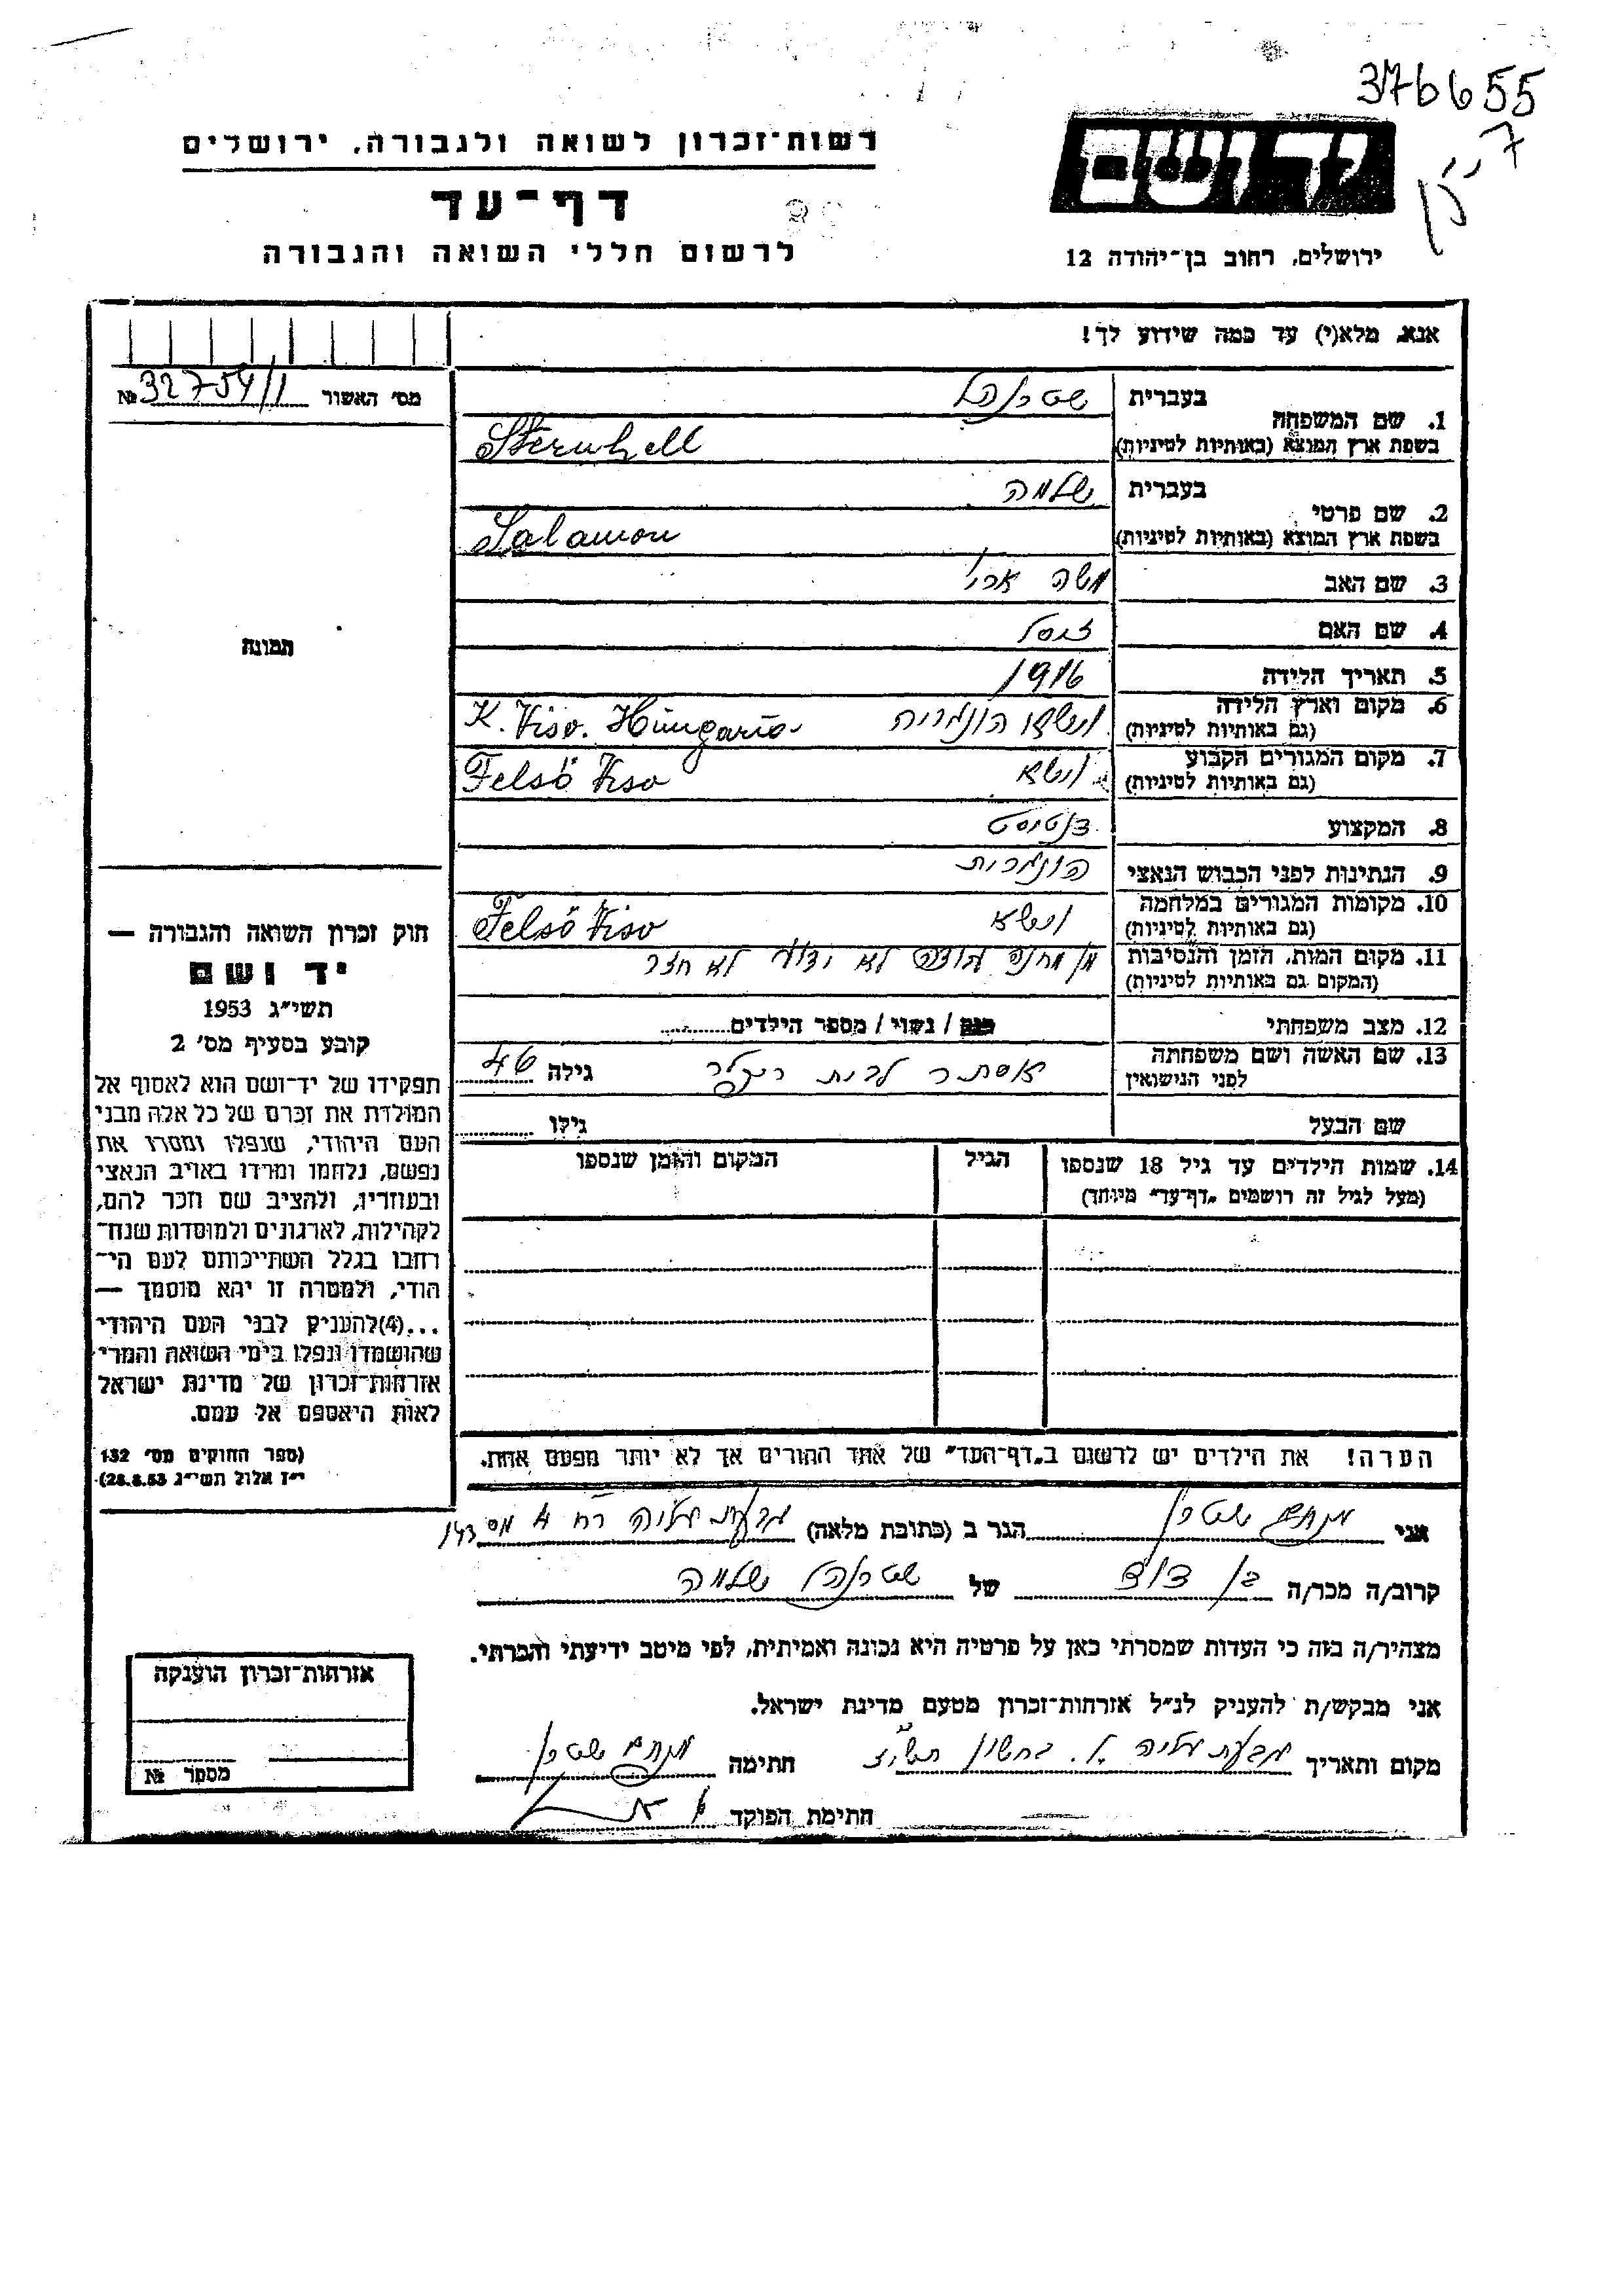 376655
רשות־זכרון לשואה ולגבורה, ירושלים
דף־עד
לרשום חללי השואה והגבורה
ידושם
ירושלים, רחוב בן־יהודה 12
אנא, מלא(י) עד כמה שידוע לך!
מס' האשור 32754/1 №
1. שם המשפחה
בעברית שטרנהל
בשפת ארץ המוצא (באותיות לטיניות) Sternhell
2. שם פרטי
בעברית שלמה
בשפת ארץ המוצא (באותיות לטיניות) Salamon
3. שם האב משה ארי
4. שם האם
5. תאריך הלידה 1916
6. מקום וארץ הלידה (גם באותיות לטיניות) הונגריה K. Viso. Hungaria
7. מקום המגורים הקבוע (גם באותיות לטיניות) וישא Felső Viso
8. המקצוע דנטיסט
9. הנתינות לפני הכבוש הנאצי הונגרית
10. מקומות המגורים במלחמה (גם באותיות לטיניות) וישא Felső Viso
11. מקום המות, הזמן והנסיבות (המקום גם באותיות לטיניות) מן מחנה עבודה לא ידוע לא חזר
12. מצב משפחתי / נשוי / מספר הילדים
13. שם האשה ושם משפחתה לפני הנישואין אסתר לבית גילה 46
שם הבעל גילו
14. שמות הילדים עד גיל 18 שנספו הגיל המקום והזמן שנספו
(מעל לגיל זה רושמים „דף־עד" מיוחד)
הערה! את הילדים יש לרשום ב„דף־העד" של אחד ההורים אך לא יותר מפעם אחת.
תמונה
חוק זכרון השואה והגבורה —
יד ושם
תשי״ג 1953
קובע בסעיף מס' 2
תפקידו של יד־ושם הוא לאסוף אל
המולדת את זכרם של כל אלה מבני
העם היהודי, שנפלו ומסרו את
נפשם, נלחמו ומרדו באויב הנאצי
ובעוזריו, ולהציב שם וזכר להם,
לקהילות, לארגונים ולמוסדות שנח־
רחבו בגלל השתייכותם לעם הי־
הודי, ולמטרה זו יהא מוסמך —
...(4)להעניק לבני העם היהודי
שהושמדו ונפלו בימי השואה והמרי
אזרחות־זכרון של מדינת ישראל
לאות היאספם אל עמם.
(ספר החוקים מס' 132
י״ז אלול תשי״ג 28.8.53)
אני מנחם שטרן הגר ב (כתובת מלאה) גבעת עליה רח 4 מס 143
קרוב/ה מכר/ה בן דוד של שטרנהל שלמה
מצהיר/ה בזה כי העדות שמסרתי כאן על פרטיה היא נכונה ואמיתית, לפי מיטב ידיעתי והכרתי.
אני מבקש/ת להעניק לנ״ל אזרחות־זכרון מטעם מדינת ישראל.
מקום ותאריך גבעת עליה חשון חתימה מנחם שטרן
חתימת הפוקד
אזרחות־זכרון הוענקה
מספר №